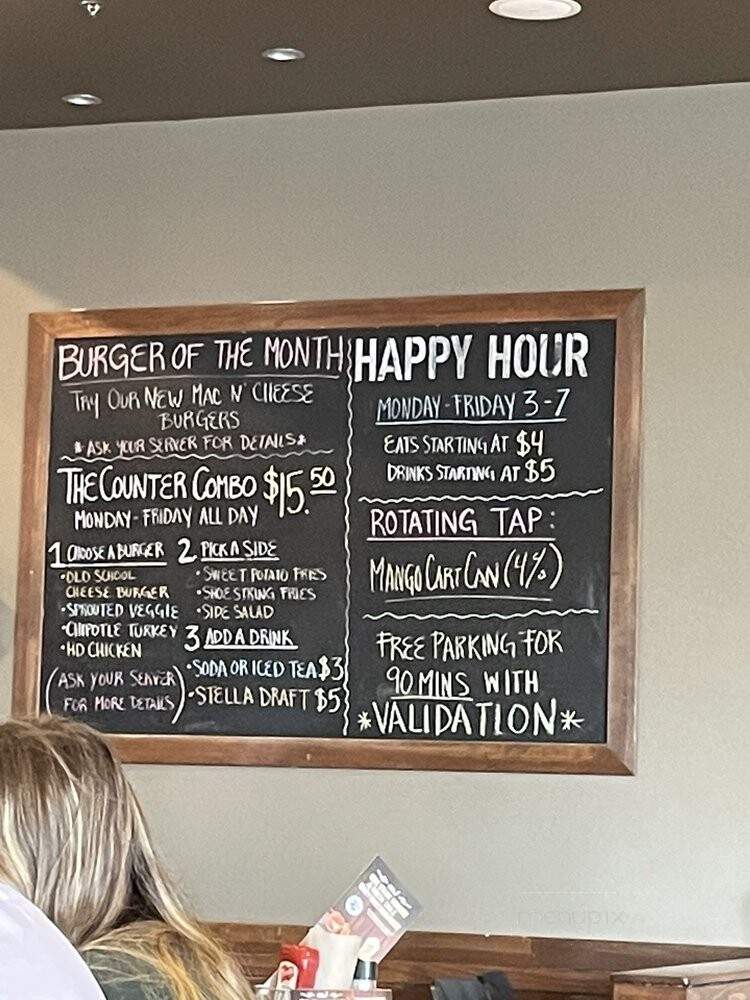 BURGER OF THE MONTH
TRY OUR NEW MAC N' CHEESE
BURGERS
*ASK YOUR SERVER FOR DETAILS*
THE COUNTER COMBO $15.50
MONDAY-FRIDAY ALL DAY
1 CHOOSE A BURGER
•OLD SCHOOL
CHEESE BURGER
•SPROUTED VEGGIE
•CHIPOTLE TURKEY
•HD CHICKEN
(ASK YOUR SERVER
FOR MORE DETAILS)
2 PICK A SIDE
•SWEET POTATO FRIES
•SHOESTRING FRIES
•SIDE SALAD
3 ADD A DRINK
•SODA OR ICED TEA $3
•STELLA DRAFT $5
HAPPY HOUR
MONDAY-FRIDAY 3-7
EATS STARTING AT $4
DRINKS STARTING AT $5
ROTATING TAP:
MANGO CART CAN (4%)
FREE PARKING FOR
90 MINS WITH
*VALIDATION*
menupix